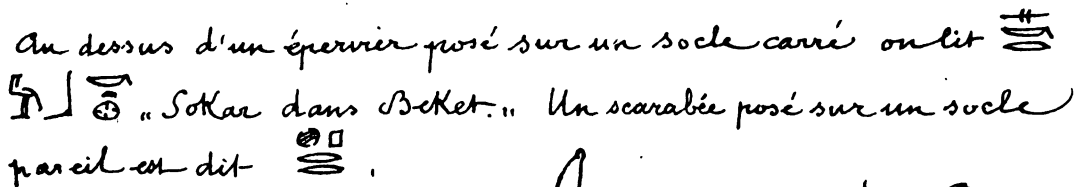 Au dessus d'un épervier posé sur un socle carré on lit
„Sokar dans Beket.„ Un scarabée posé sur un socle
pareil est dit .